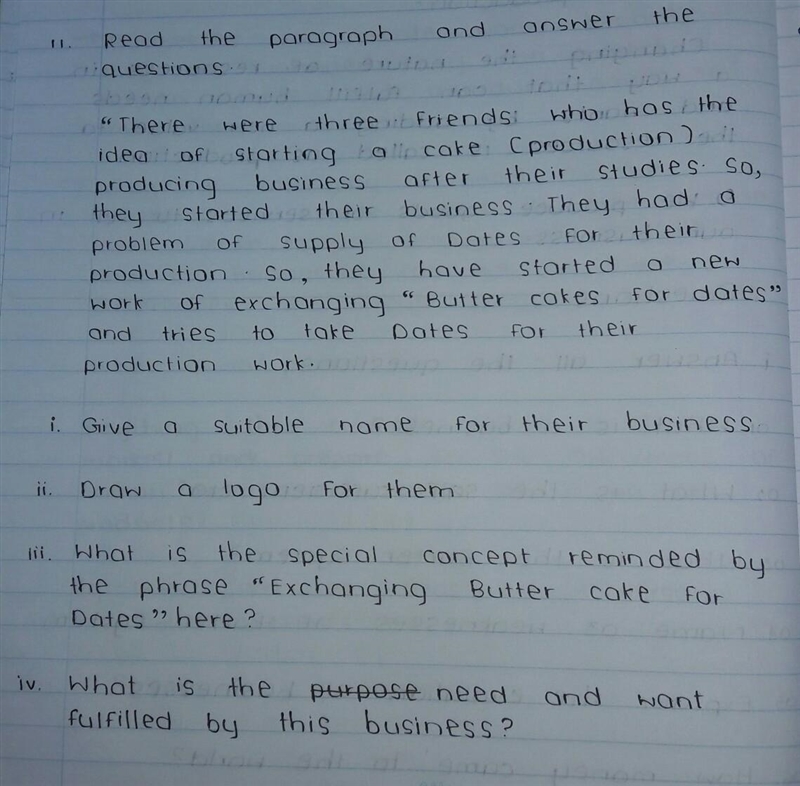 11. Read the paragraph and answer the
questions.
"There were three friends who has the
idea of starting a cake (production)
producing business after their studies. So,
they started their business. They had a
problem of supply of Dates for their
production. So, they have started a new
work of exchanging "Butter cakes for dates"
and tries to take Dates for their
production work.
i. Give a suitable name for their business.
ii. Draw a logo for them
iii. What is the special concept reminded by
the phrase "Exchanging Butter cake for
Dates" here?
iv. What is the purpose need and want
fulfilled by this business?